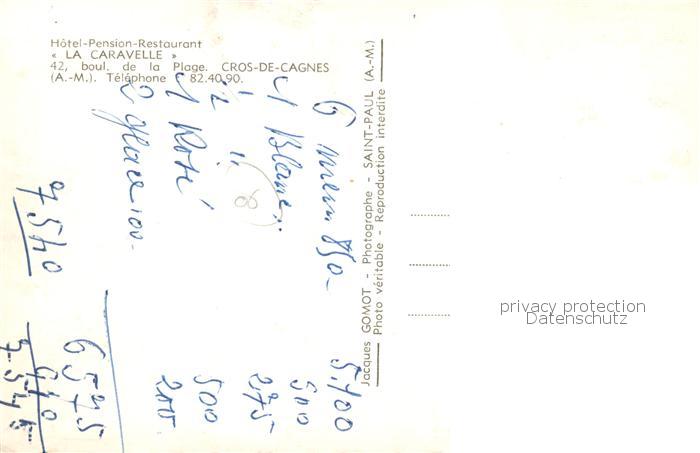 Hôtel-Pension-Restaurant
« LA CARAVELLE »
42, boul. de la Plage. CROS-DE-CAGNES
(A.-M.). Téléphone : 82.40.90.
Jacques GOMOT - Photographe - SAINT-PAUL (A.-M.)
Photo véritable - Reproduction interdite
6 menu 850- 5.100
1 Blanc 500
1/2 " 275
1 Rosé 500
2 glace 100- 200
8
6575
7540
privacy protection
Datenschutz